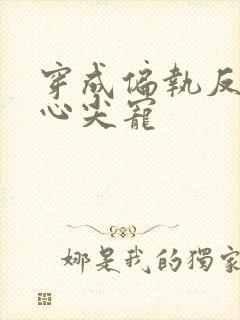 穿成偏執反
心尖寵
娜是我的獨家